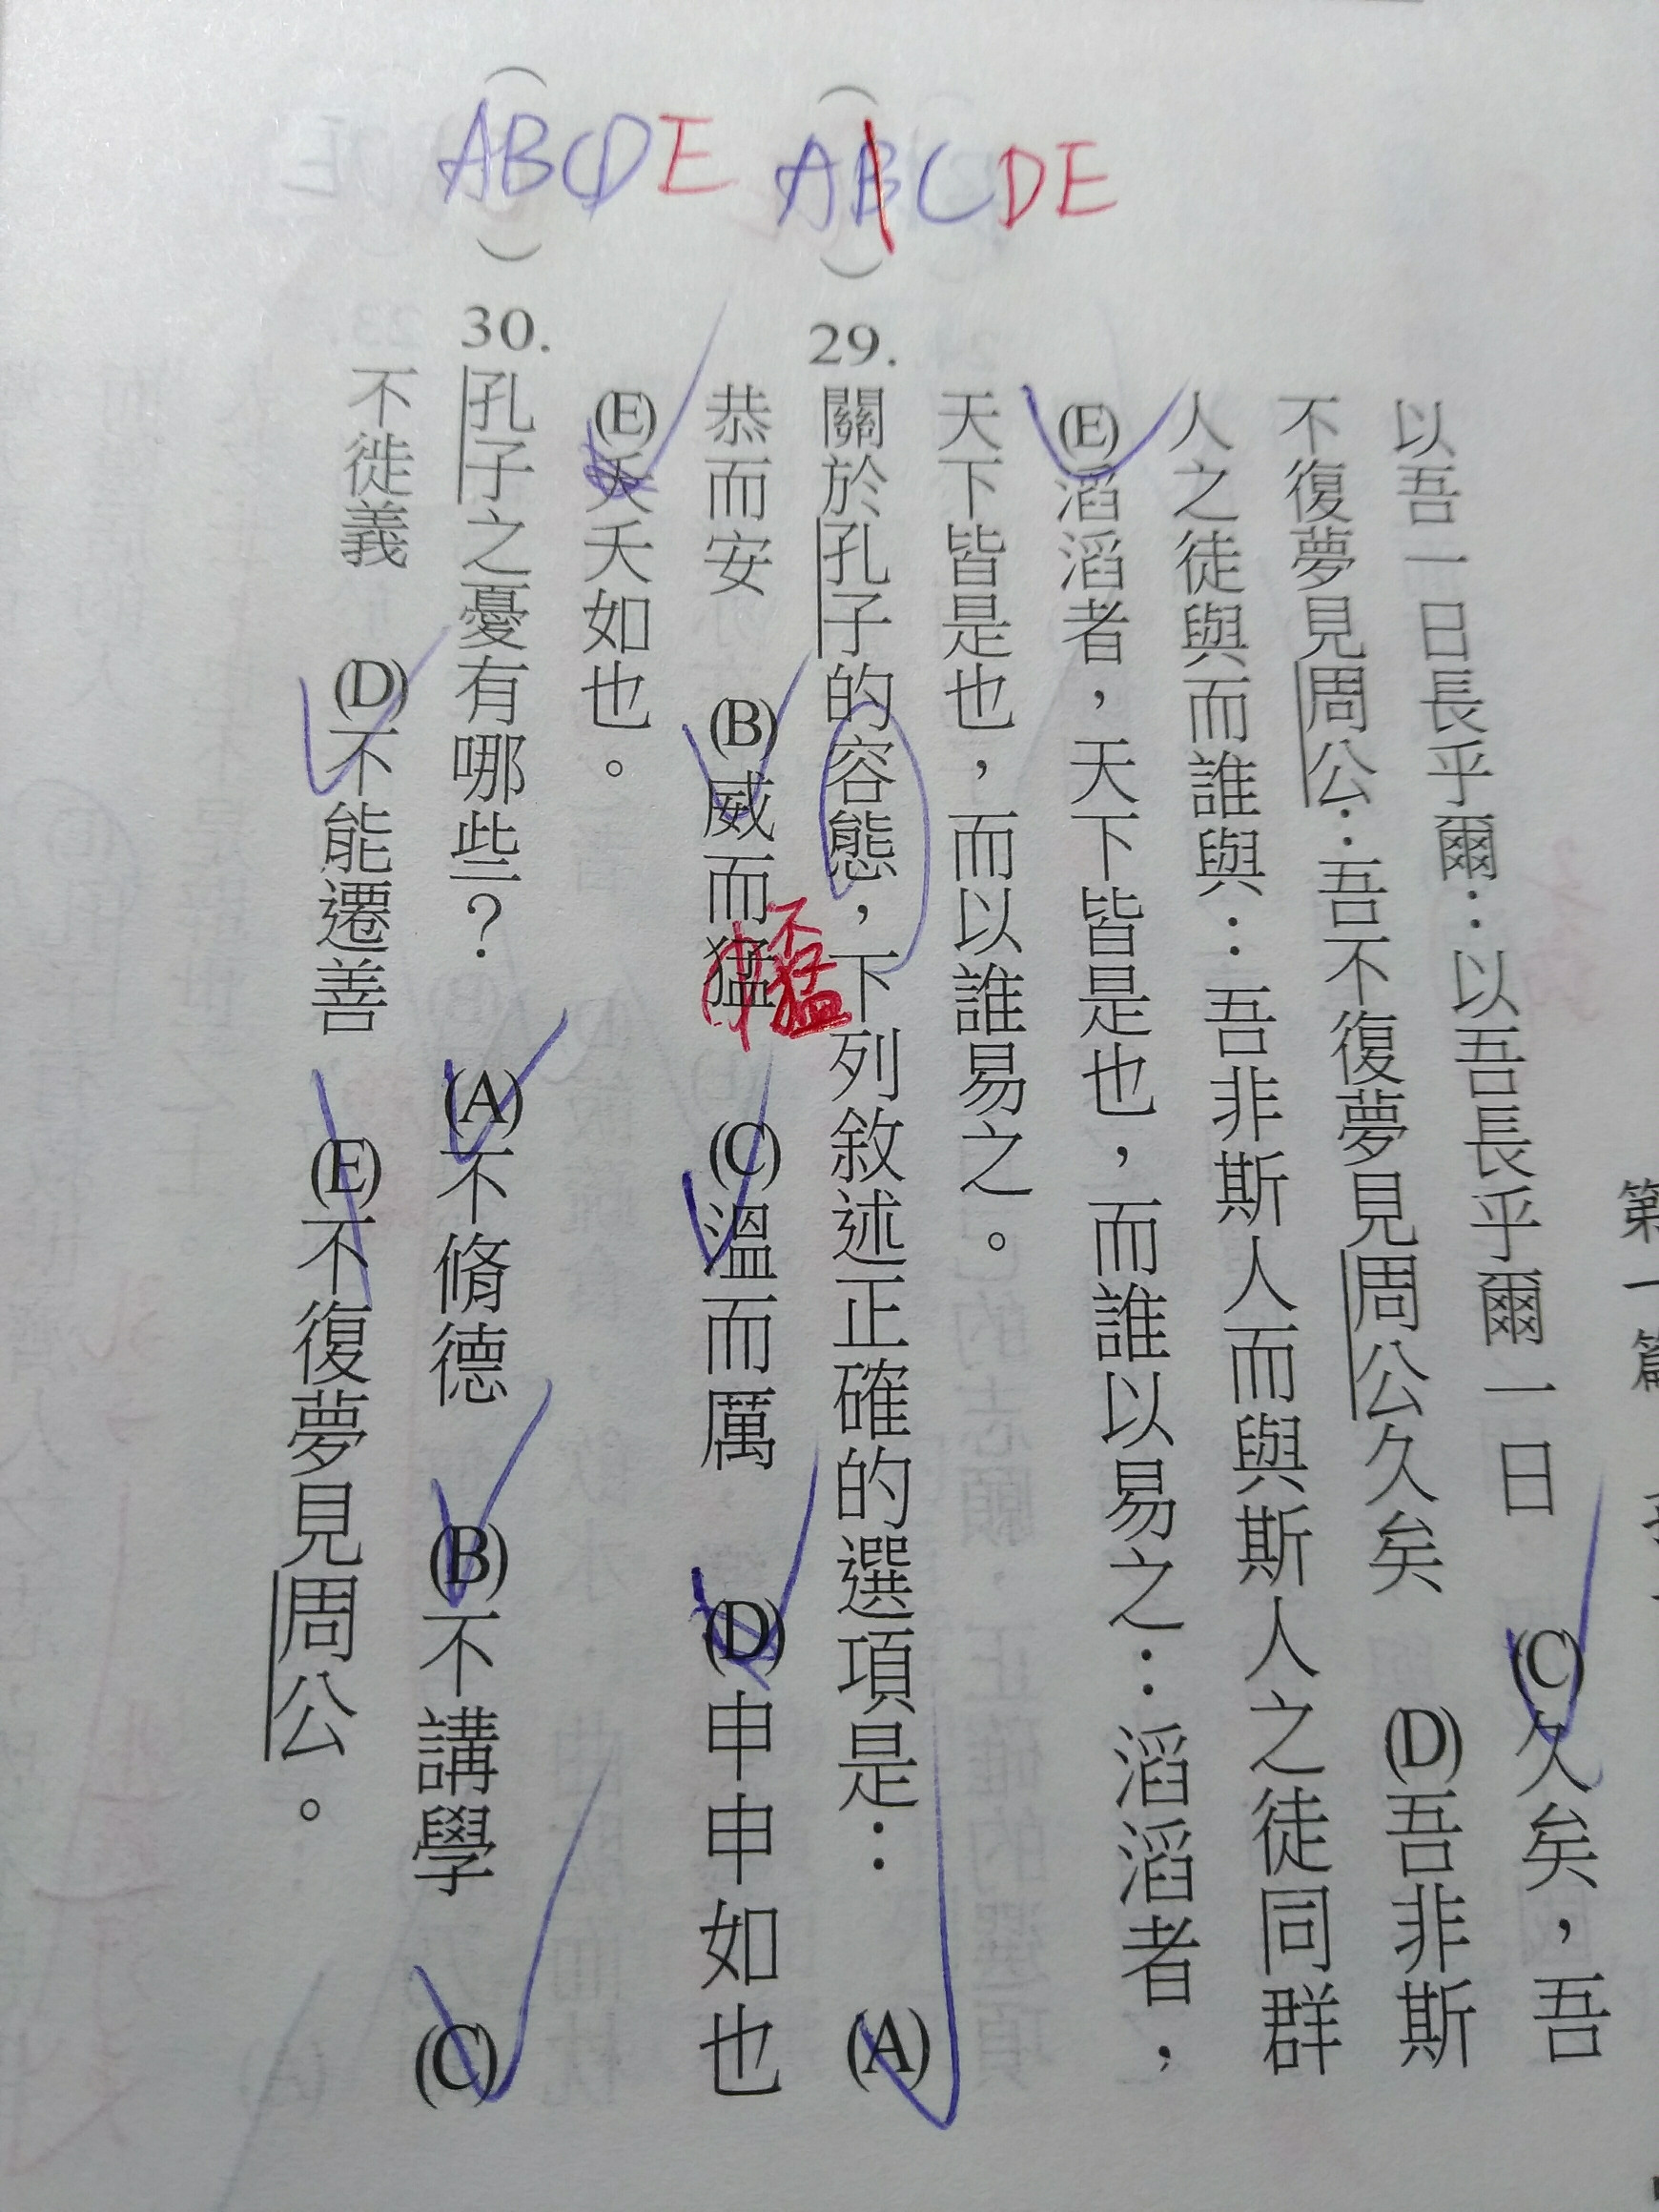 第一篇
以吾一日長乎爾：以吾長乎爾一日 (C)久矣，吾
不復夢見周公：吾不復夢見周公久矣 (D)吾非斯
人之徒與而誰與：吾非斯人而與斯人之徒同群
(E)滔滔者，天下皆是也，而誰以易之：滔滔者，
天下皆是也，而以誰易之。
(ABCDE) 29. 關於孔子的容態，下列敘述正確的選項是： (A)
恭而安 (B)威而猛 (C)溫而厲 (D)申申如也
不猛
(E)夭夭如也。
(ABCDE) 30. 孔子之憂有哪些？ (A)不脩德 (B)不講學 (C)
不徙義 (D)不能遷善 (E)不復夢見周公。